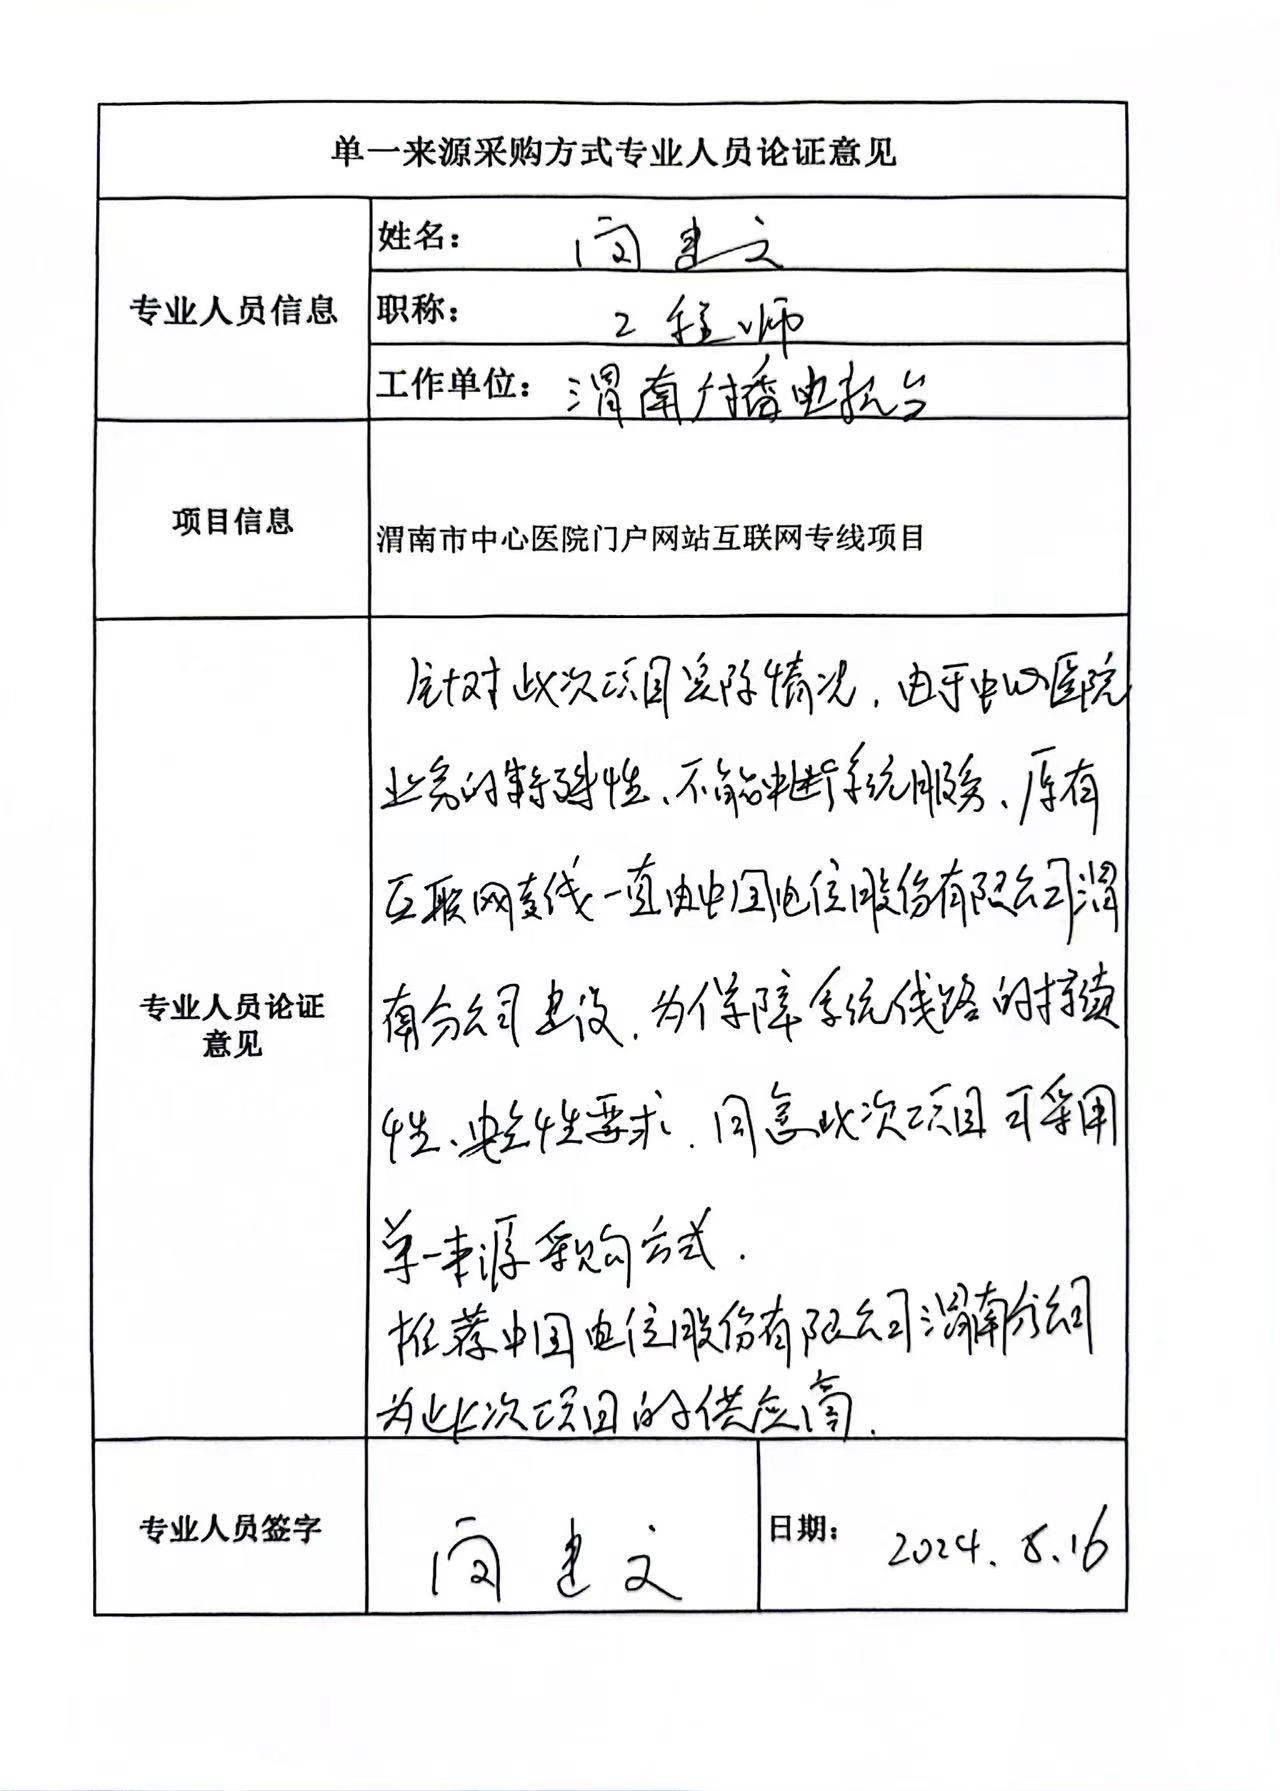 单一来源采购方式专业人员论证意见
专业人员信息
姓名: 闵建文
职称: 工程师
工作单位: 渭南广播电视台
项目信息
渭南市中心医院门户网站互联网专线项目
专业人员论证
意见
针对此次项目实际情况,由于中心医院
业务的特殊性、不能中断系统服务、原有
互联网专线一直由中国电信股份有限公司渭
南分公司建设,为保障系统线路的持续
性、安全性要求,同意此次项目可采用
单一来源采购方式.
推荐中国电信股份有限公司渭南分公司
为此次项目的供应商.
专业人员签字
闵建文
日期: 2024.8.16